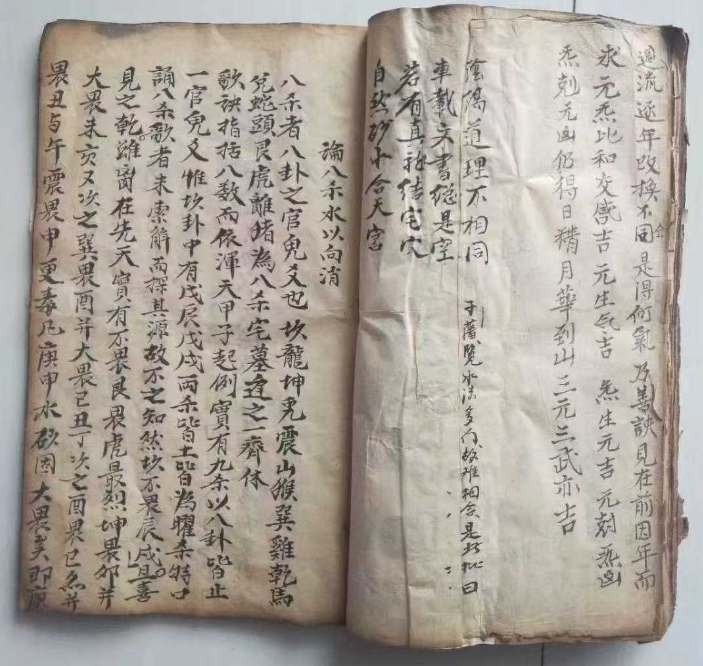 週流逐年改换不同是得何氣乃善訣見在前因年而
求元炁比和交感吉 元生气吉 炁生元吉 元剋炁凶
炁剋元凶仍得日精月華到山三元三武亦吉
陰陽道理不相同
予廣覽水法多门故难相合是书批曰
車載朱書總是空
若有真龍結宅穴
自然砂水合天宮
論八杀水以向消
八杀者八卦之官鬼爻也坎龍坤兔震山猴巽雞乾馬
兌蛇頭艮虎離猪為八杀宅墓逢之一齊休
歌訣指括八数而依渾天甲子起例實有九杀以八卦皆止
一官鬼爻惟坎卦中有戊辰戊戌兩杀皆土皆為曜杀特口
誦八杀歌者未索解而探其源故不之知然坎不畏辰戌且喜
見之乾離在先天實有不畏艮畏虎最烈坤畏卯并
大畏未亥又次之巽畏酉并大畏己丑丁次之酉畏巳炁并
畏丑与午震畏申更毒凡庚申水大畏矣即庚